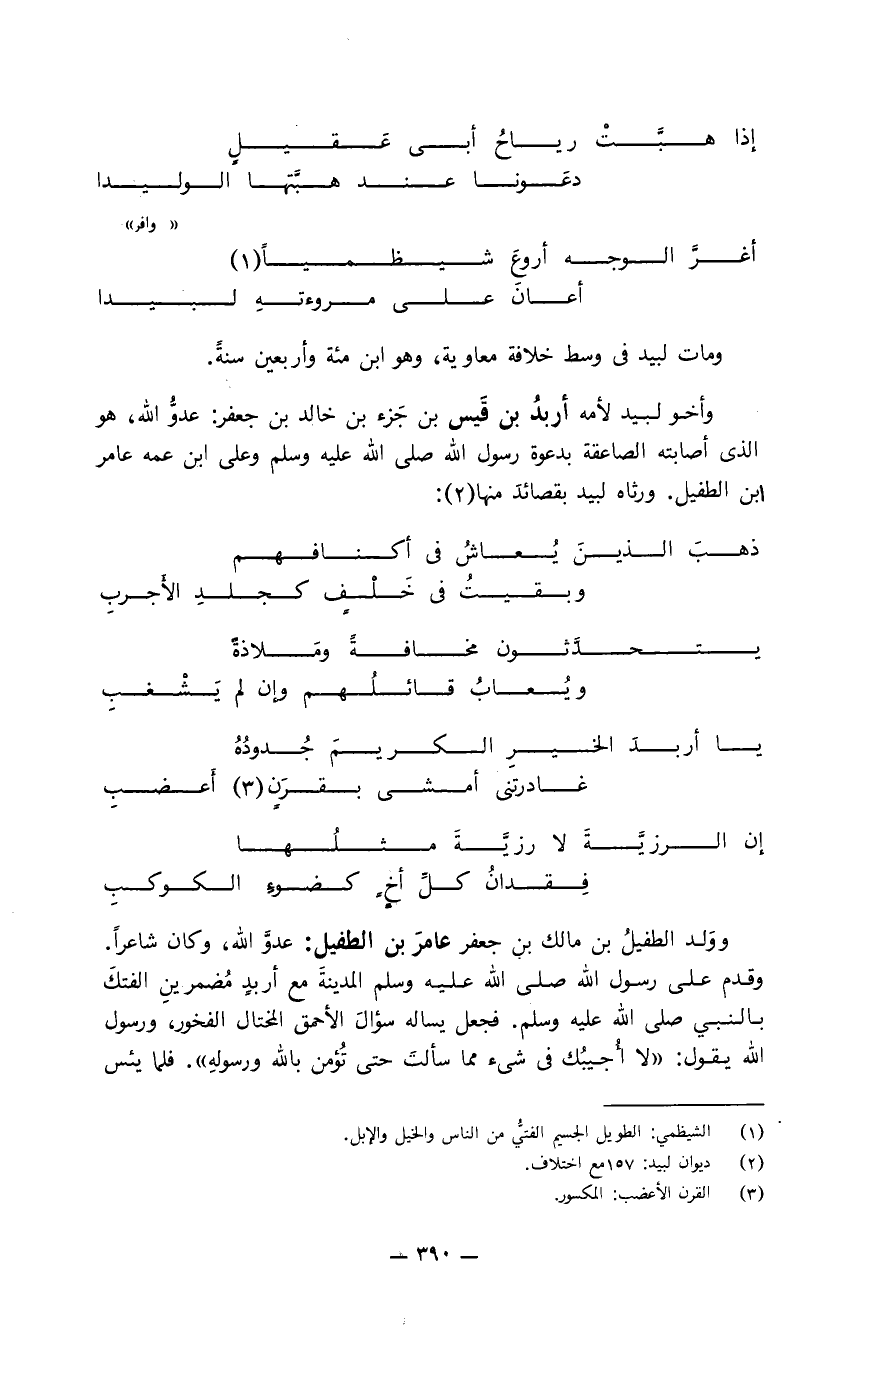 إذا هبَّتْ رياحُ أبى عَقيلٍ
دعَونا عند هبَّتها الوليدا
« وافر»
أغرَّ الوجه أروعَ شيظمياً(١)
أعانَ على مروءتهِ لبيدا
ومات لبيد فى وسط خلافة معاوية، وهو ابن مئة وأربعين سنةً.
وأخو لبيد لأمه أربدُ بن قَيس بن جَزء بن خالد بن جعفر: عدوُّ الله، هو
الذى أصابته الصاعقة بدعوة رسول الله صلى الله عليه وسلم وعلى ابن عمه عامر
ابن الطفيل. ورثاه لبيد بقصائدَ منها(٢):
ذهبَ الذينَ يُعاشُ فى أكنافهم
وبقيتُ فى خَلْفٍ كجلدِ الأَجربِ
يتحدَّثون مخافةً ومَلاذةً
ويُعابُ قائلُهم وإن لم يَشْغبِ
يا أربدَ الخيرِ الكريمَ جُدودُهُ
غادرتنى أمشى بقرَنٍ(٣) أَعضبِ
إن الرزيَّةَ لا رزيَّةَ مثلُها
فِقدانُ كلِّ أخٍ كضوءِ الكوكبِ
ووَلد الطفيلُ بن مالك بن جعفر عامرَ بن الطفيل: عدوَّ الله، وكان شاعراً.
وقدم على رسول الله صلى الله عليه وسلم المدينةَ مع أربدٍ مُضمرينِ الفتكَ
بالنبي صلى الله عليه وسلم. فجعل يساله سؤالَ الأحمق المختال الفخور، ورسول
الله يقول: «لا أُجيبُك فى شىء مما سألتَ حتى تُؤمن بالله ورسولهِ». فلما يئس
(١) الشيظمي: الطويل الجسيم الفتيُّ من الناس والخيل والإبل.
(٢) ديوان لبيد: ١٥٧مع اختلاف.
(٣) القرن الأعضب: المكسور.
— ٣٩٠ —